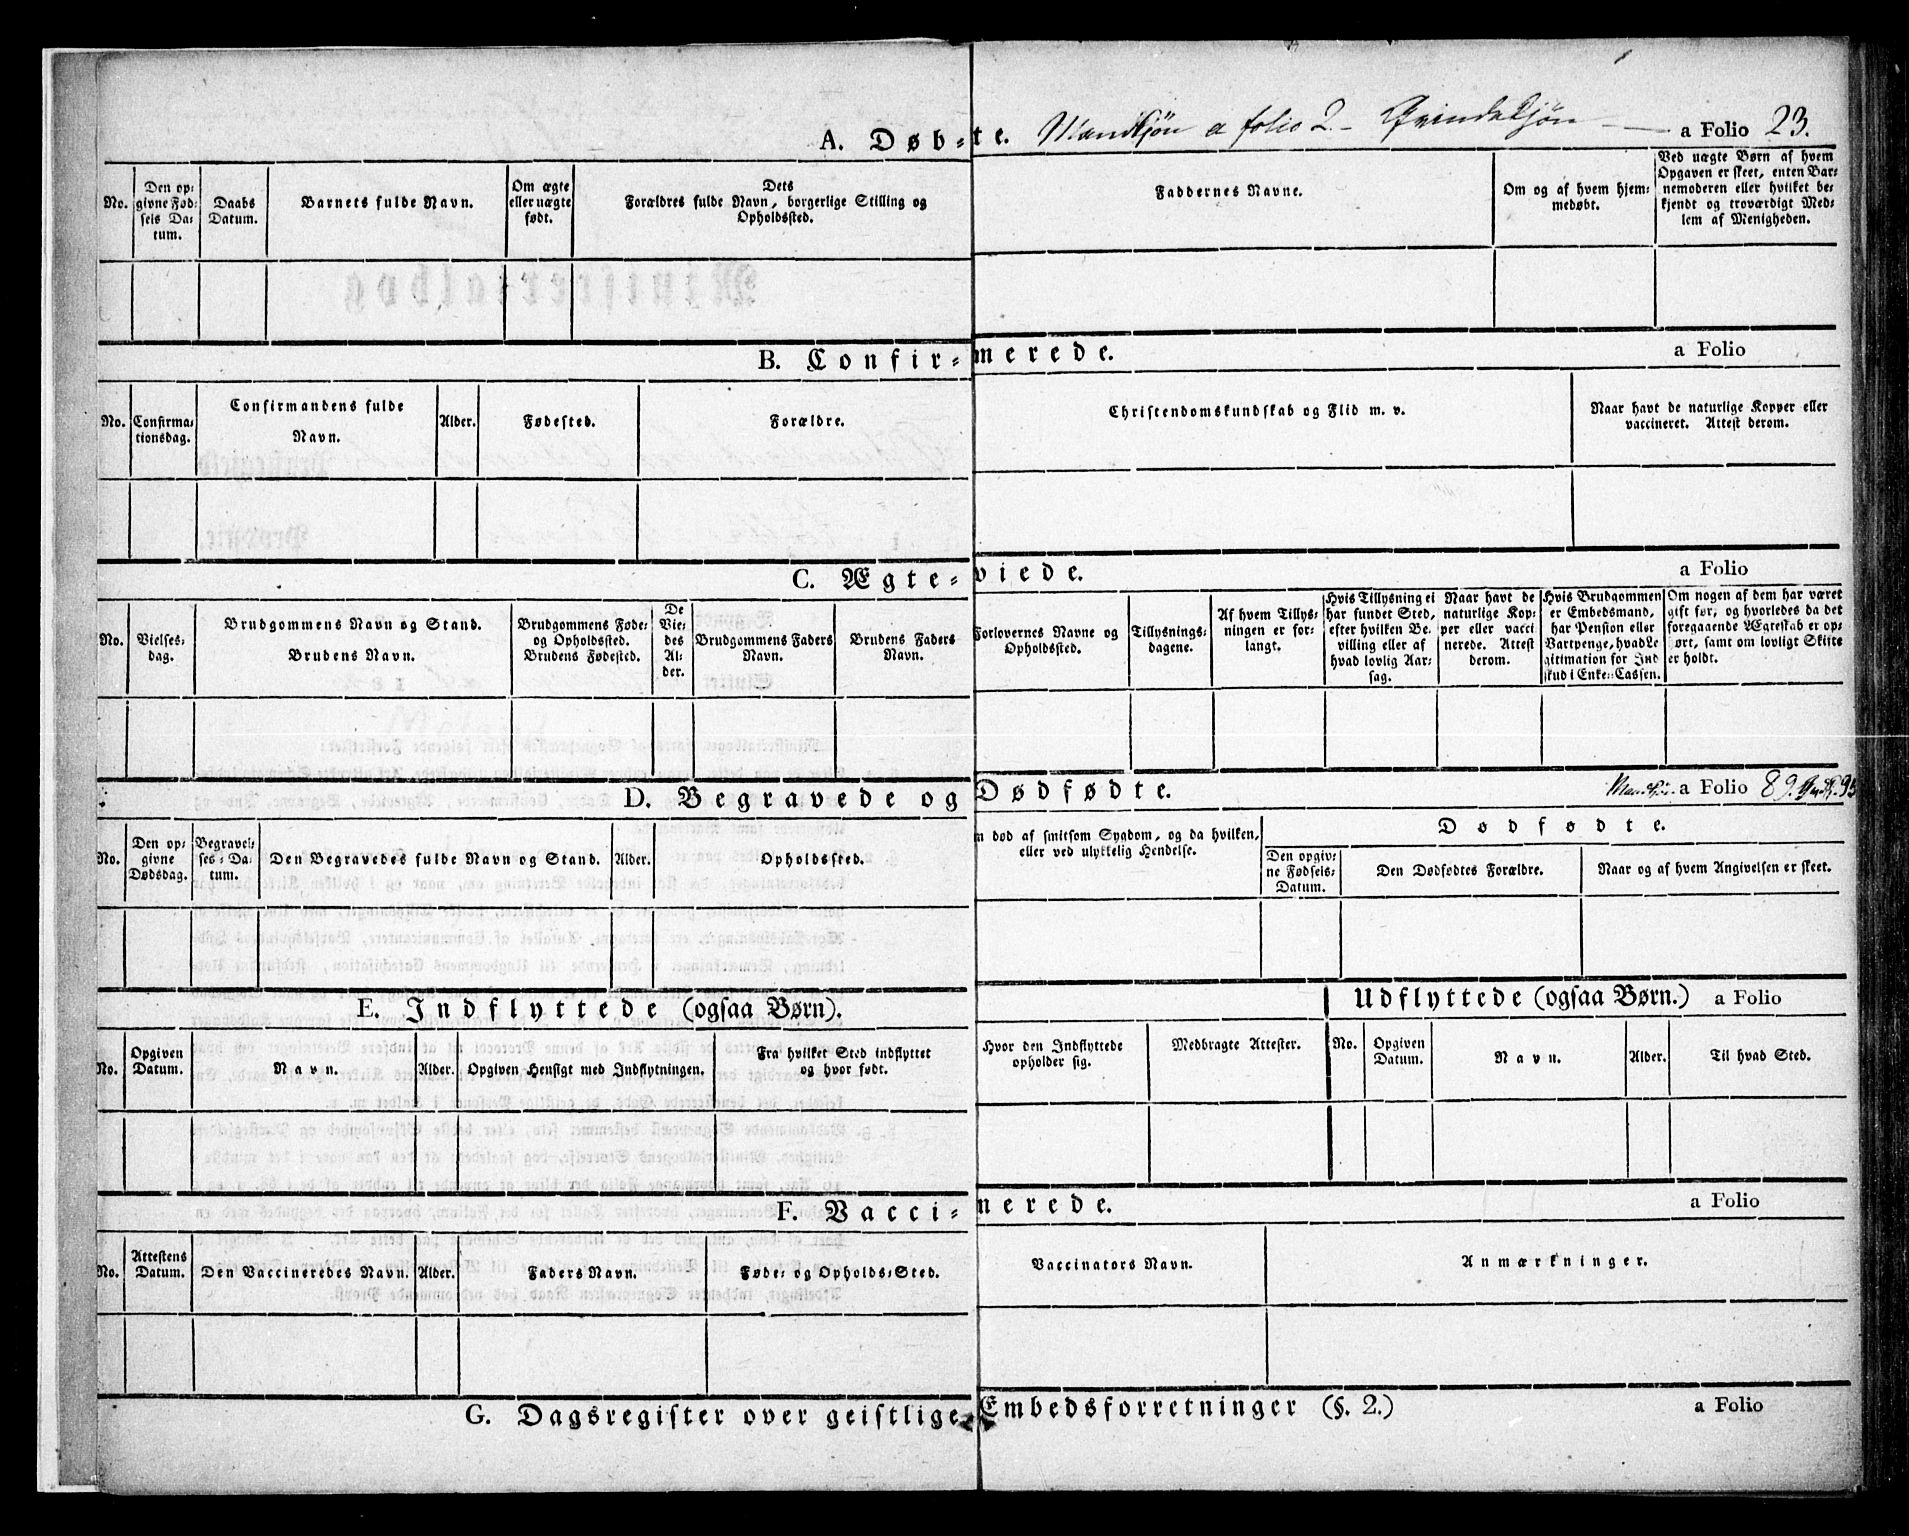 A. Døbte. Mandkjøn a folio 2 - Qvindekjøn - a Folio 23.
No.
Den opgivne Fødsels Datum.
Daabs Datum.
Barnets fulde Navn.
Om ægte eller uægte født.
Dets Forældres fulde Navn, borgerlige Stilling og Opholdssted.
Faddernes Navne.
Om og af hvem hjemmedøbt.
Ved uægte Børn af hvem Opgaven er skeet, enten Barnemoderen eller hvilket bekjendt og troværdigt Medlem af Menigheden.
B. Confirmerede. a Folio
No.
Confirmationsdag.
Confirmandens fulde Navn.
Alder.
Fødested.
Forældre.
Christendomskundskab og Flid m. v.
Naar havt de naturlige Kopper eller vaccineret. Attest derom.
C. Ægteviede. a Folio
No.
Vielsesdag.
Brudgommens Navn og Stand.
Brudens Navn.
Brudgommens Føde- og Opholdssted.
Brudens Fødested.
De Viedes Alder.
Brudgommens Faders Navn.
Brudens Faders Navn.
Forlovernes Navne og Opholdssted.
Tillysningsdagene.
Af hvem Tillysningen er forlangt.
Hvis Tillysning ei har fundet Sted, efter hvilken Bevilling eller af hvad lovlig Aarsag.
Naar havt de naturlige Kopper eller vaccinerede. Attest derom.
Hvis Brudgommen er Embedsmand, har Pension eller Vartpenge, hvad Legitimation for Indskud i Enke-Cassen.
Om nogen af dem har været gift før, og hvorledes da det foregaaende Ægteskab er opørt, samt om lovligt Skifte er holdt.
D. Begravede og Dødfødte. a Folio 89.
No.
Den opgivne Dødsdag.
Begravelses-Datum.
Den Begravedes fulde Navn og Stand.
Alder.
Opholdssted.
m død af smitsom Sygdom, og da hvilken, eller ved ulykkelig Hendelse.
Dødfødte.
Den opgivne Fødsels-Datum.
Den Dødfødtes Forældre.
Naar og af hvem Angivelsen er skeet.
E. Indflyttede (ogsaa Børn). Udflyttede (ogsaa Børn.) a Folio
No.
Opgiven Datum.
Navn.
Alder.
Opgiven Hensigt med Indflytningen.
Fra hvilket Sted indflyttet og hvor født.
Hvor den Indflyttede opholder sig.
Medbragte Attester.
No.
Opgiven Datum.
Navn.
Alder.
Til hvad Sted.
F. Vaccinerede. a Folio
No.
Attestens Datum.
Den Vaccineredes Navn.
Alder.
Faders Navn.
Føde- og Opholds-Sted.
Vaccinators Navn.
Anmærkninger.
G. Dagsregister over geistlige Embedsforretninger (§. 2.) a Folio